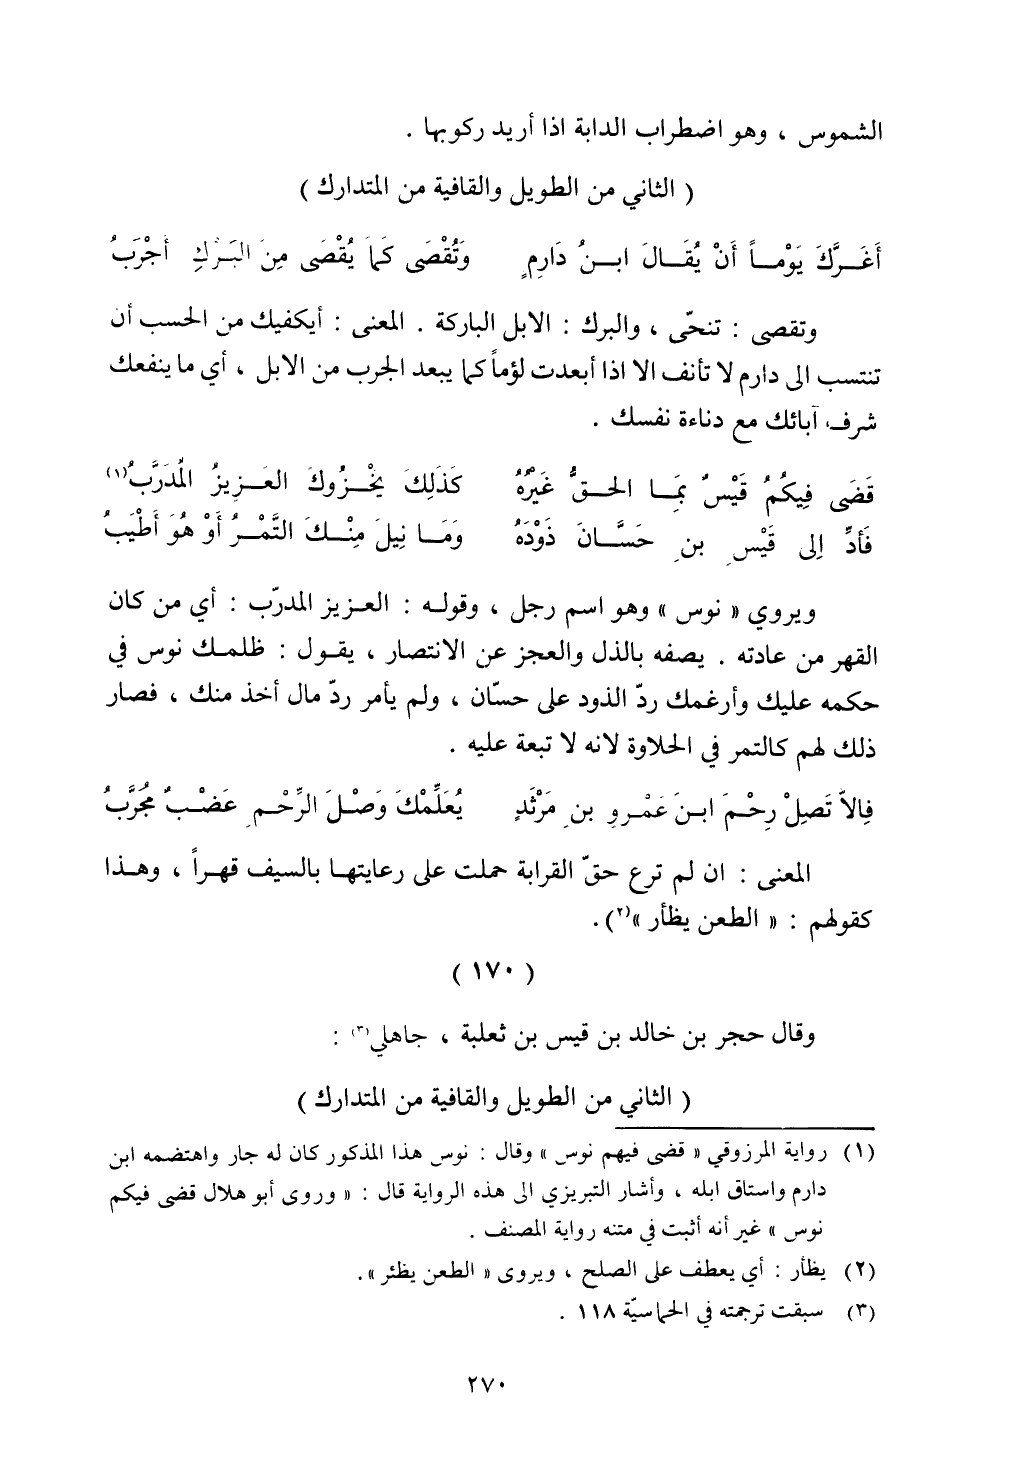 الشموس ، وهو اضطراب الدابة اذا أريد ركوبها .
( الثاني من الطويل والقافية من المتدارك )
أَغَـرَّكَ يَوْمـاً أَنْ يُقَـالَ ابـنُ دَارِمٍ وَتُقْصَى كَمَا يُقْصَى مِنَ البَـرْكِ أَجْرَبُ
وتقصى : تنحّى ، والبرك : الابل الباركة . المعنى : أيكفيك من الحسب أن
تنتسب الى دارم لا تأنف الا اذا أبعدت لؤماً كما يبعد الجرب من الابل ، أي ما ينفعك
شرف آبائك مع دناءة نفسك .
قَضَى فِيكُمُ قَيْسٌ بِمَـا الحـقُّ غَيْرُهُ كَذَلِكَ يَخْـزُوكَ العَـزِيزُ المُدَرَّبُ(١)
فَأَدِّ إِلى قَيْسِ بنِ حَسَّـانَ ذَوْدَهُ وَمَـا نِيلَ مِنْـكَ التَّمْـرُ أَوْ هُوَ أَطْيَبُ
ويروي « نوس » وهو اسم رجل ، وقولـه : العـزيز المدرّب : أي من كان
القهر من عادته . يصفه بالذل والعجز عن الانتصار ، يقـول : ظلمـك نوس في
حكمه عليك وأرغمك ردّ الذود على حسّان ، ولم يأمر ردّ مال أخذ منك ، فصار
ذلك لهم كالتمر في الحلاوة لانه لا تبعة عليه .
فَإِلاَّ تَصِلْ رِحْـمَ ابـنَ عَمْـرِو بنِ مَرْثَدٍ يُعَلِّمْكَ وَصْـلَ الرِّحْـمِ عَضْـبٌ مُجَرَّبُ
المعنى : ان لم ترع حقّ القرابة حملت على رعايتهـا بالسيف قهـراً ، وهـذا
كقولهم : « الطعن يظأر »(٢).
( ١٧٠ )
وقال حجر بن خالد بن قيس بن ثعلبة ، جاهلي(٣) :
( الثاني من الطويل والقافية من المتدارك )
(١) رواية المرزوقي « قضى فيهم نوس » وقال : نوس هذا المذكور كان له جار واهتضمه ابن
دارم واستاق ابله ، وأشار التبريزي الى هذه الرواية قال : « وروى أبو هلال قضى فيكم
نوس » غير أنه أثبت في متنه رواية المصنف .
(٢) يظأر : أي يعطف على الصلح ، ويروى « الطعن يظئر ».
(٣) سبقت ترجمته في الحماسيّة ١١٨ .
٢٧٠